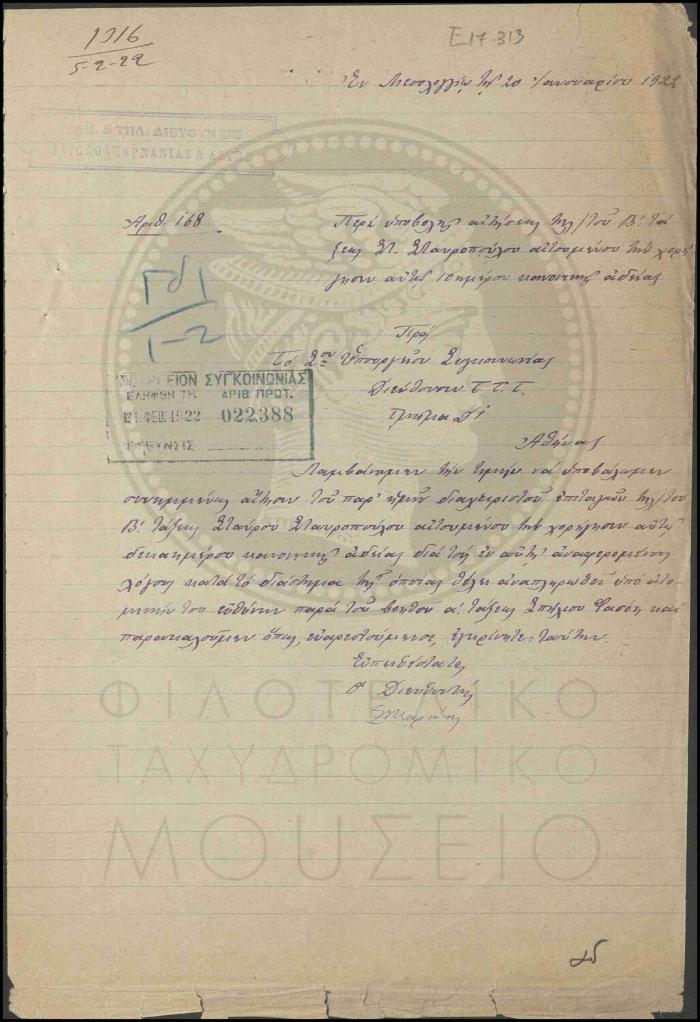 1316
5-2-22
E17-313
Ἐν Μεσολογγίῳ τῇ 20 Ἰανουαρίου 1922
ΤΗΛ. ΔΙΕΥΘΥΝΣΙΣ
ΑΙΤΩΛΟΑΚΑΡΝΑΝΙΑΣ &
Ἀριθ. 168
Περὶ ὑποβολῆς αἰτήσεως τηλ/τοῦ Β! τά
ξεως Στ. Σταυροπούλου αἰτουμένου τὴν χορή
γησιν αὐτῷ 10ημέρου κανονικῆς ἀδείας
1-2
Πρὸς
Τὸ Σον Ὑπουργεῖον Συγκοινωνίας
Διεύθυνσιν Τ.Τ.Τ.
Τμῆμα Δ!
ΣΥΓΚΟΙΝΩΝΙΑΣ
ΕΛΗΦΘΗ ΤΗ ΑΡΙΘ. ΠΡΩΤ.
ΦΕΒ. 1922 022388
Ἀθήνας
Λαμβάνομεν τὴν τιμὴν νὰ ὑποβάλωμεν
συνημμένως αἴτησιν τοῦ παρ' ἡμῖν διαχειριστοῦ ἐπιταγῶν τηλ/τοῦ
Β! τάξεως Σταύρου Σταυροπούλου αἰτουμένου τὴν χορήγησιν αὐτῷ
δεκαημέρου κανονικῆς ἀδείας διὰ τοὺς ἐν αὐτῇ ἀναφερομένους
λόγους κατὰ τὸ διάστημα τῆς ὁποίας θέλει ἀναπληρωθεῖ ὑπὸ ἀτο
μικήν του εὐθύνην παρὰ τοῦ βοηθοῦ α! τάξεως Σπήλιου καὶ
παρακαλοῦμεν ὅπως, εὐαρεστούμενος, ἐγκρίνητε ταύτην.
Εὐπειθέστατος
Ὁ Διευθυντὴς
ΦΙΛΟΤΕΛΙΚΟ
ΤΑΧΥΔΡΟΜΙΚΟ
ΜΟΥΣΕΙΟ